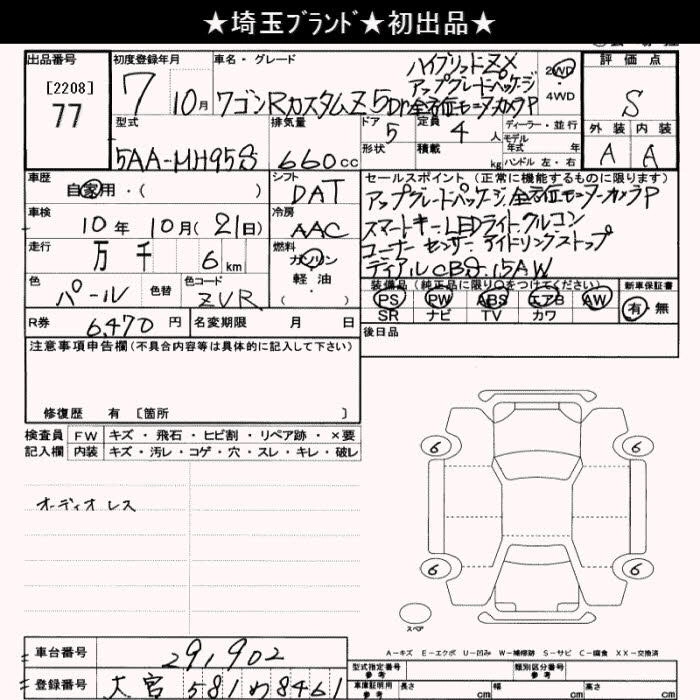 ★埼玉ﾌﾞﾗﾝﾄﾞ★初出品★
出品番号
[2208]
77
初度登録年月
7 10月
車名・グレード
ワゴンRカスタムZ 5Dr
ハイブリットZX
アップグレードパッケージ
全方位モニターカメラP
2WD
4WD
評価点
S
外装 内装
A A
型式
5AA-MH95S
排気量
660cc
ドア
5
定員
4人
形状
積載
kg
ディーラー・並行
モデル
年式 年
ハンドル 左・右
車歴
自家用・( )
シフト
DAT
車検
10年 10月 (21日)
冷房
AAC
走行
万 千 6 km
燃料
ガソリン
・
軽油
( )
色
パール
色替
色コード
ZVR
R券
6,470円
名変期限 月 日
セールスポイント (正常に機能するものに限ります)
アップグレードパッケージ,全方位モニターカメラP
スマートキー,LEDライト,クルコン
コーナーセンサー,アイドリングストップ
デュアルCBS,15AW
装備品(純正品に限り○をつけてください)
PS PW ABS エアB AW
SR ナビ TV カワ
新車保証書
有・無
後日品
注意事項申告欄(不具合内容等は具体的に記入して下さい)
修復歴 有 〔箇所 〕
検査員 FW キズ・飛石・ヒビ割・リペア跡・×要
記入欄 内装 キズ・汚レ・コゲ・穴・スレ・キレ・破レ
オーディオレス
6 6
6 6
スペア
A-キズ E-エクボ U-凹み W-補修跡 S-サビ C-腐食 XX-交換済
車台番号
291902
登録番号
大宮 581 わ 8461
型式指定番号
参考
類別区分番号
参考
車庫証明用
参考
長さ cm 幅 cm 高さ cm